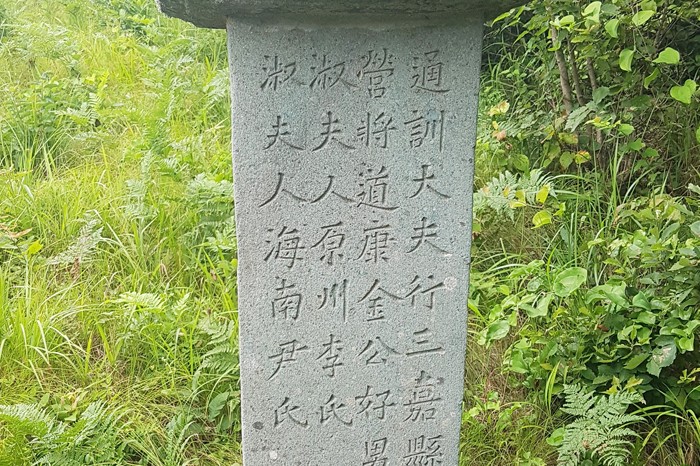 通訓大夫行三嘉縣
營將道康金公好
淑夫人原州李氏
淑夫人海南尹氏